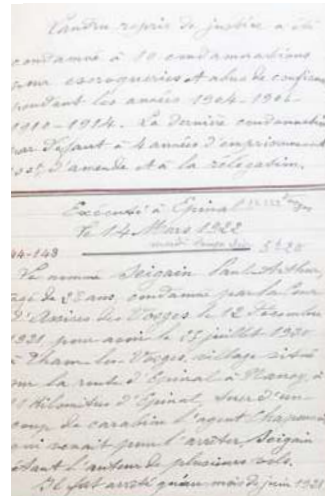 Landru repris de justice a été
condamné à 10 condamnations
pour escroqueries et abus de confiance
pendant les années 1904-1906-
1910-1914. La dernière condamnation
par défaut à 4 années d'emprisonnement
d'amende et à la rélégation.
Exécuté à Epinal
le 14 Mars 1922
mardi temps 5h20
44-143
Le nommé Seigain Paul-Arthur,
agé de 28 ans, condamné par la Cour
d'Assises des Vosges le 12 Décembre
1921 pour avoir le 23 juillet 1920
à Thaon-les-Vosges, village situé
sur la route d'Epinal à Nancy, à
Kilomètres d'Epinal, tué d'un
coup de carabine l'agent
qui venait pour l'arrêter, Seigain
étant l'auteur de plusieurs vols.
Il fut arrêté qu'au mois de juin 1921